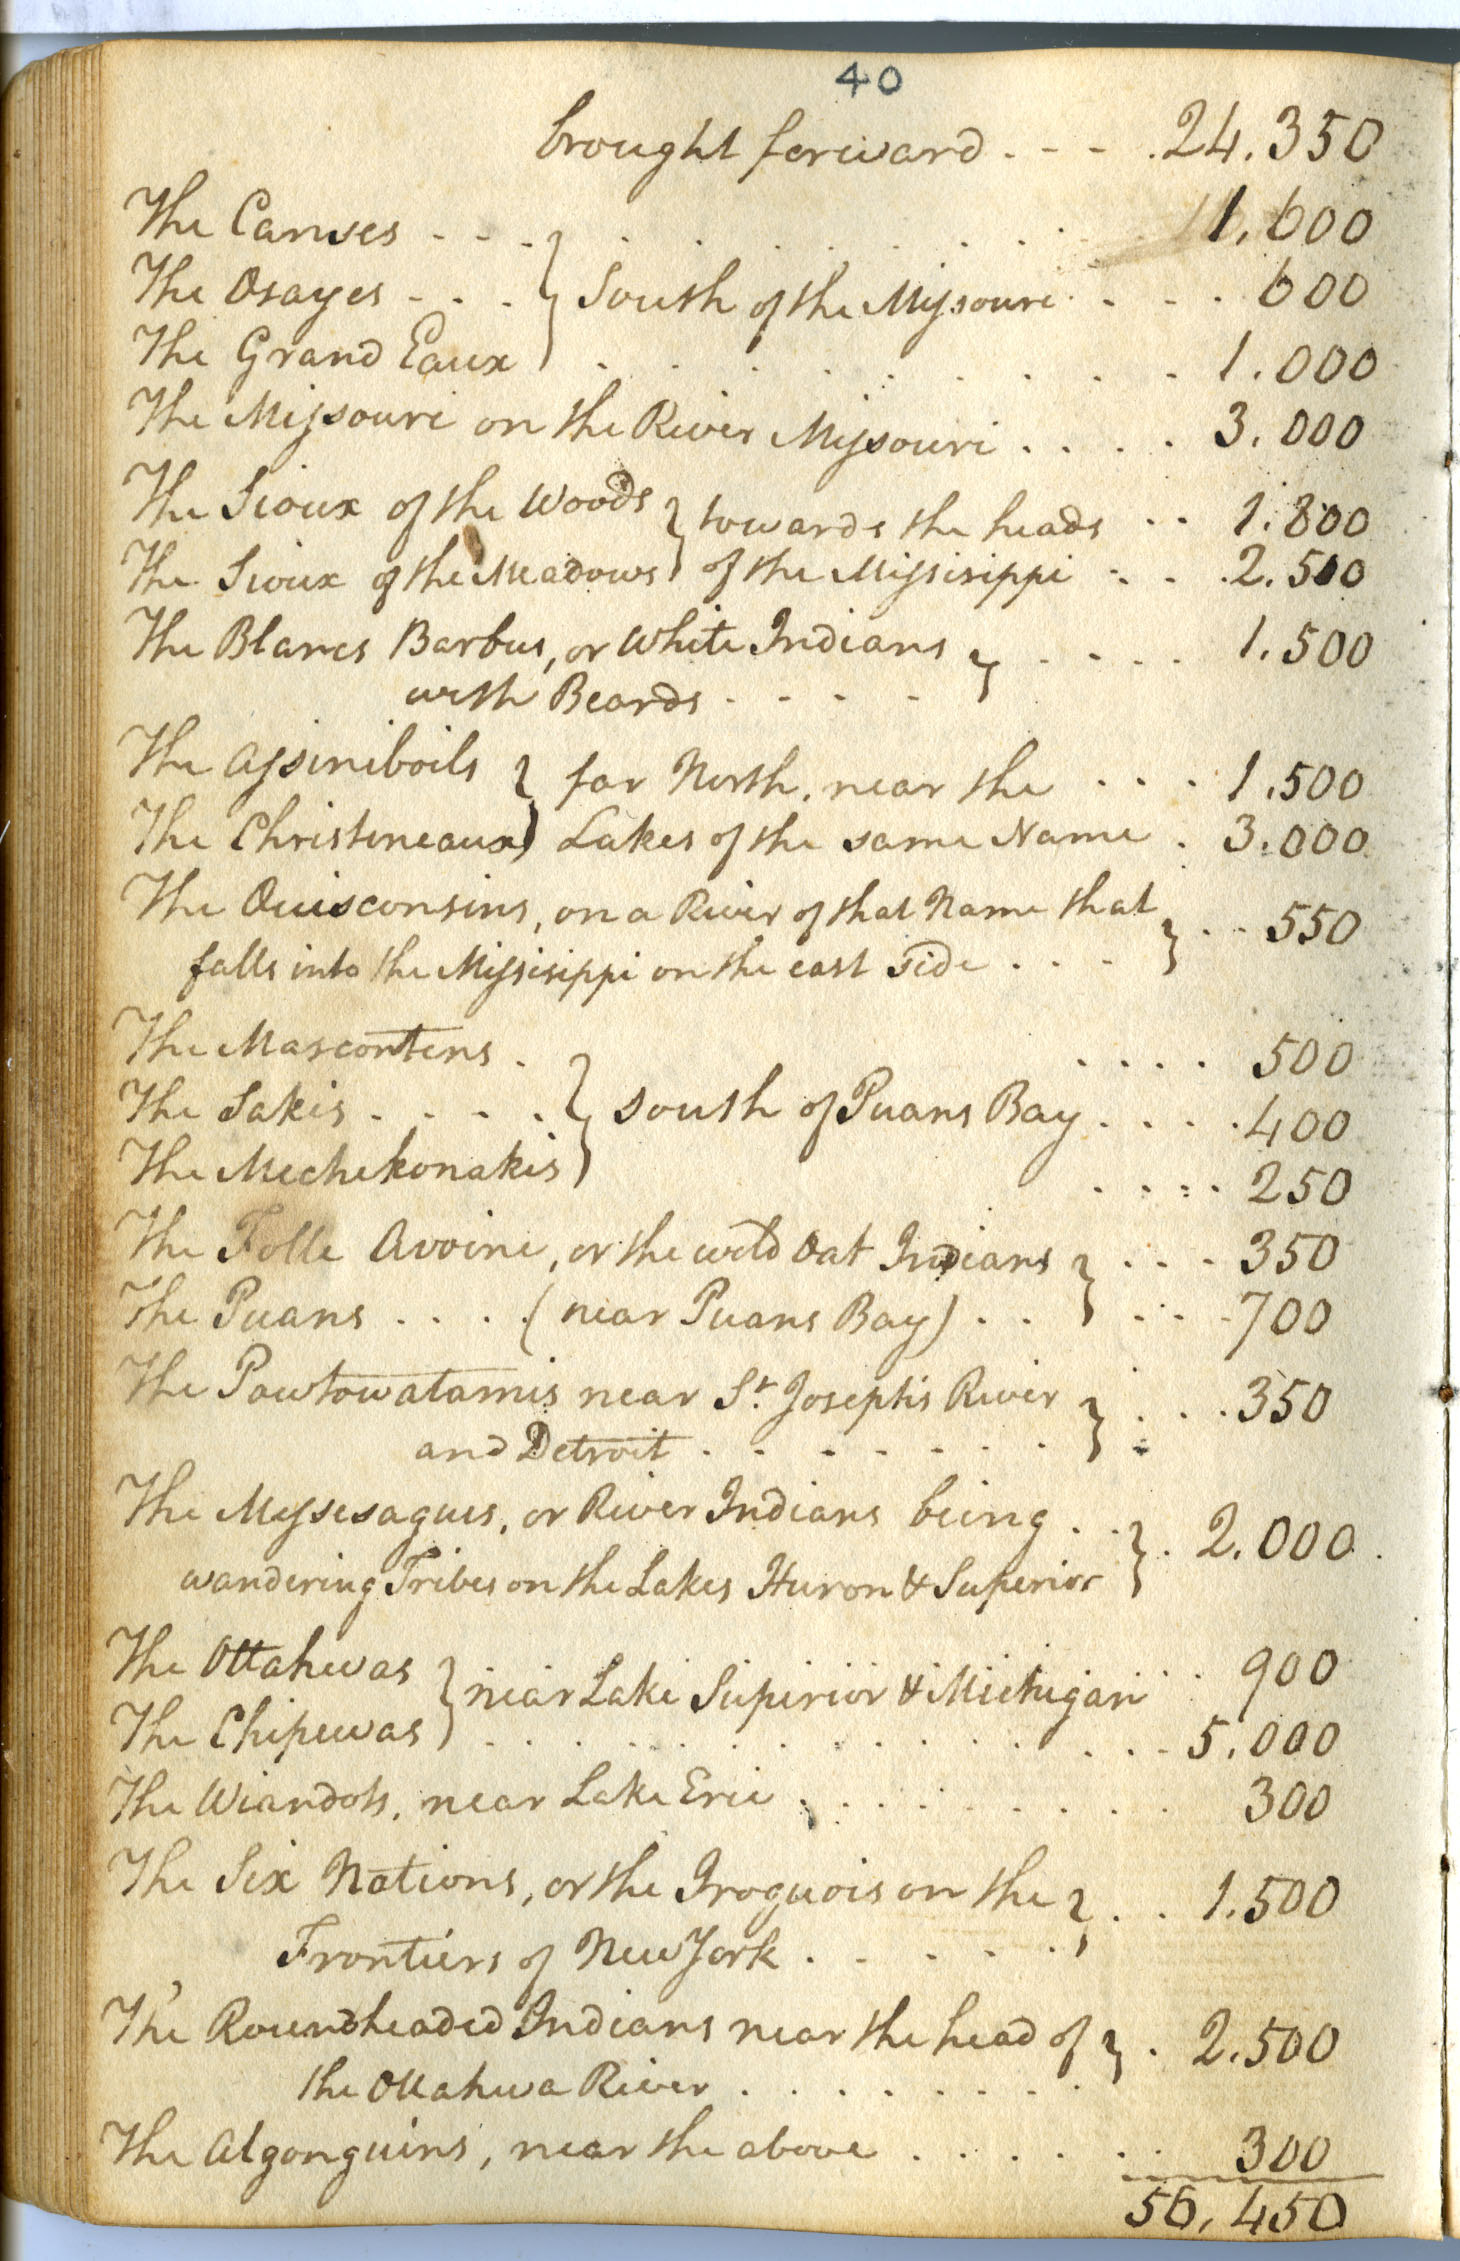 40
brought forward . - - . 24.350
The Canses - - - . . . . . . . . 1.600
The Osages - . . } South of the Missouri . - - . 600
The Grand Eaux . . . . . . . . . 1.000
The Missouri on the River Missouri . . . . 3.000
The Sioux of the Woods } towards the heads . . 1.800
The Sioux of the Meadows } of the Missisippi . . . 2.500
The Blancs Barbus, or White Indians } . . . . 1.500
with Beards . - - - -
The Assiniboils } far North, near the . . . 1.500
The Christineaux } Lakes of the same Name . 3.000
The Ouisconsins, on a River of that Name that } . . 550
falls into the Missisippi on the east side . . .
The Mascontens . . . . . 500
The Sakis . . . . } south of Puans Bay . . . . 400
The Mechekonakis } . . . . 250
The Folle Avoine, or the wild Oat Indians } . . . 350
The Puans . . . ( near Puans Bay ) . . } . . . 700
The Pawtowatamis near St. Joseph's River } . . . 350
and Detroit . - - - - - -
The Messesagues, or River Indians being . . } . 2.000.
wandering Tribes on the Lakes Huron & Superior
The Ottahwas } near Lake Superior & Michigan . . 900
The Chipewas } . . . . . . . . . . . . 5.000
The Wiandots, near Lake Erie . . . . . . . . 300
The Six Nations, or the Iroquois on the } . . 1.500
Frontiers of New York . . . . .
The Roundheaded Indians near the head of } . 2.500
the Ottahwa River . . . . . . . .
The Algonquins, near the above . . . . . . 300
56,450